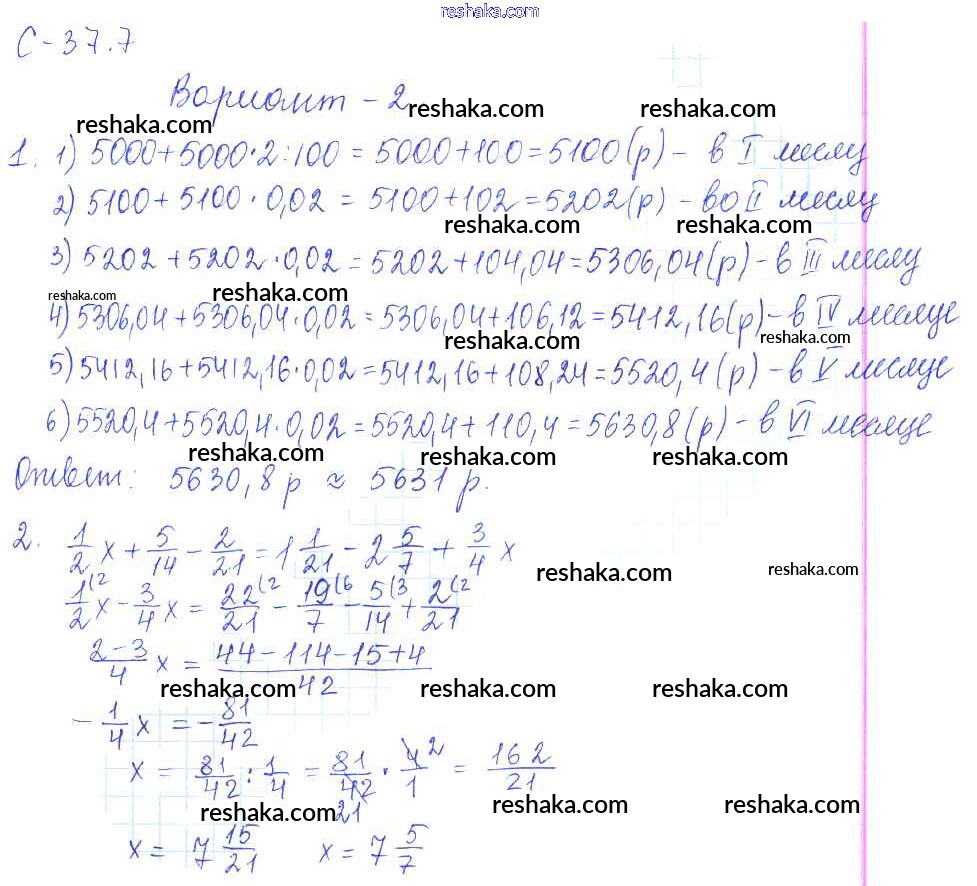 reshaka.com
С-37.7
Вариант - 2
reshaka.com reshaka.com reshaka.com
1. 1) 5000+5000·2:100 = 5000+100=5100(р) - в I месяц
2) 5100+5100·0,02 = 5100+102=5202(р) - во II месяц
reshaka.com reshaka.com
3) 5202+5202·0,02=5202+104,04=5306,04(р) - в III месяц
reshaka.com reshaka.com
4) 5306,04+5306,04·0,02=5306,04+106,12=5412,16(р) - в IV месяце
reshaka.com reshaka.com
5) 5412,16+5412,16·0,02=5412,16+108,24=5520,4(р) - в V месяце
6) 5520,4+5520,4·0,02=5520,4+110,4=5630,8(р) - в VI месяце
reshaka.com reshaka.com reshaka.com
Ответ: 5630,8 р ≈ 5631 р.
2. 1/2 x + 5/14 - 2/21 = 1 1/21 - 2 5/7 + 3/4 x
reshaka.com reshaka.com
1/2 (2 x - 3/4 x = 22/21 (2 - 19/7 (6 - 5/14 (3 + 2/21 (2
2-3/4 x = 44-114-15+4/42
reshaka.com reshaka.com reshaka.com
-1/4 x = -81/42
x = 81/42 : 1/4 = 81/42 · 4/1 2 = 162/21
21
reshaka.com reshaka.com
x = 7 15/21 x = 7 5/7